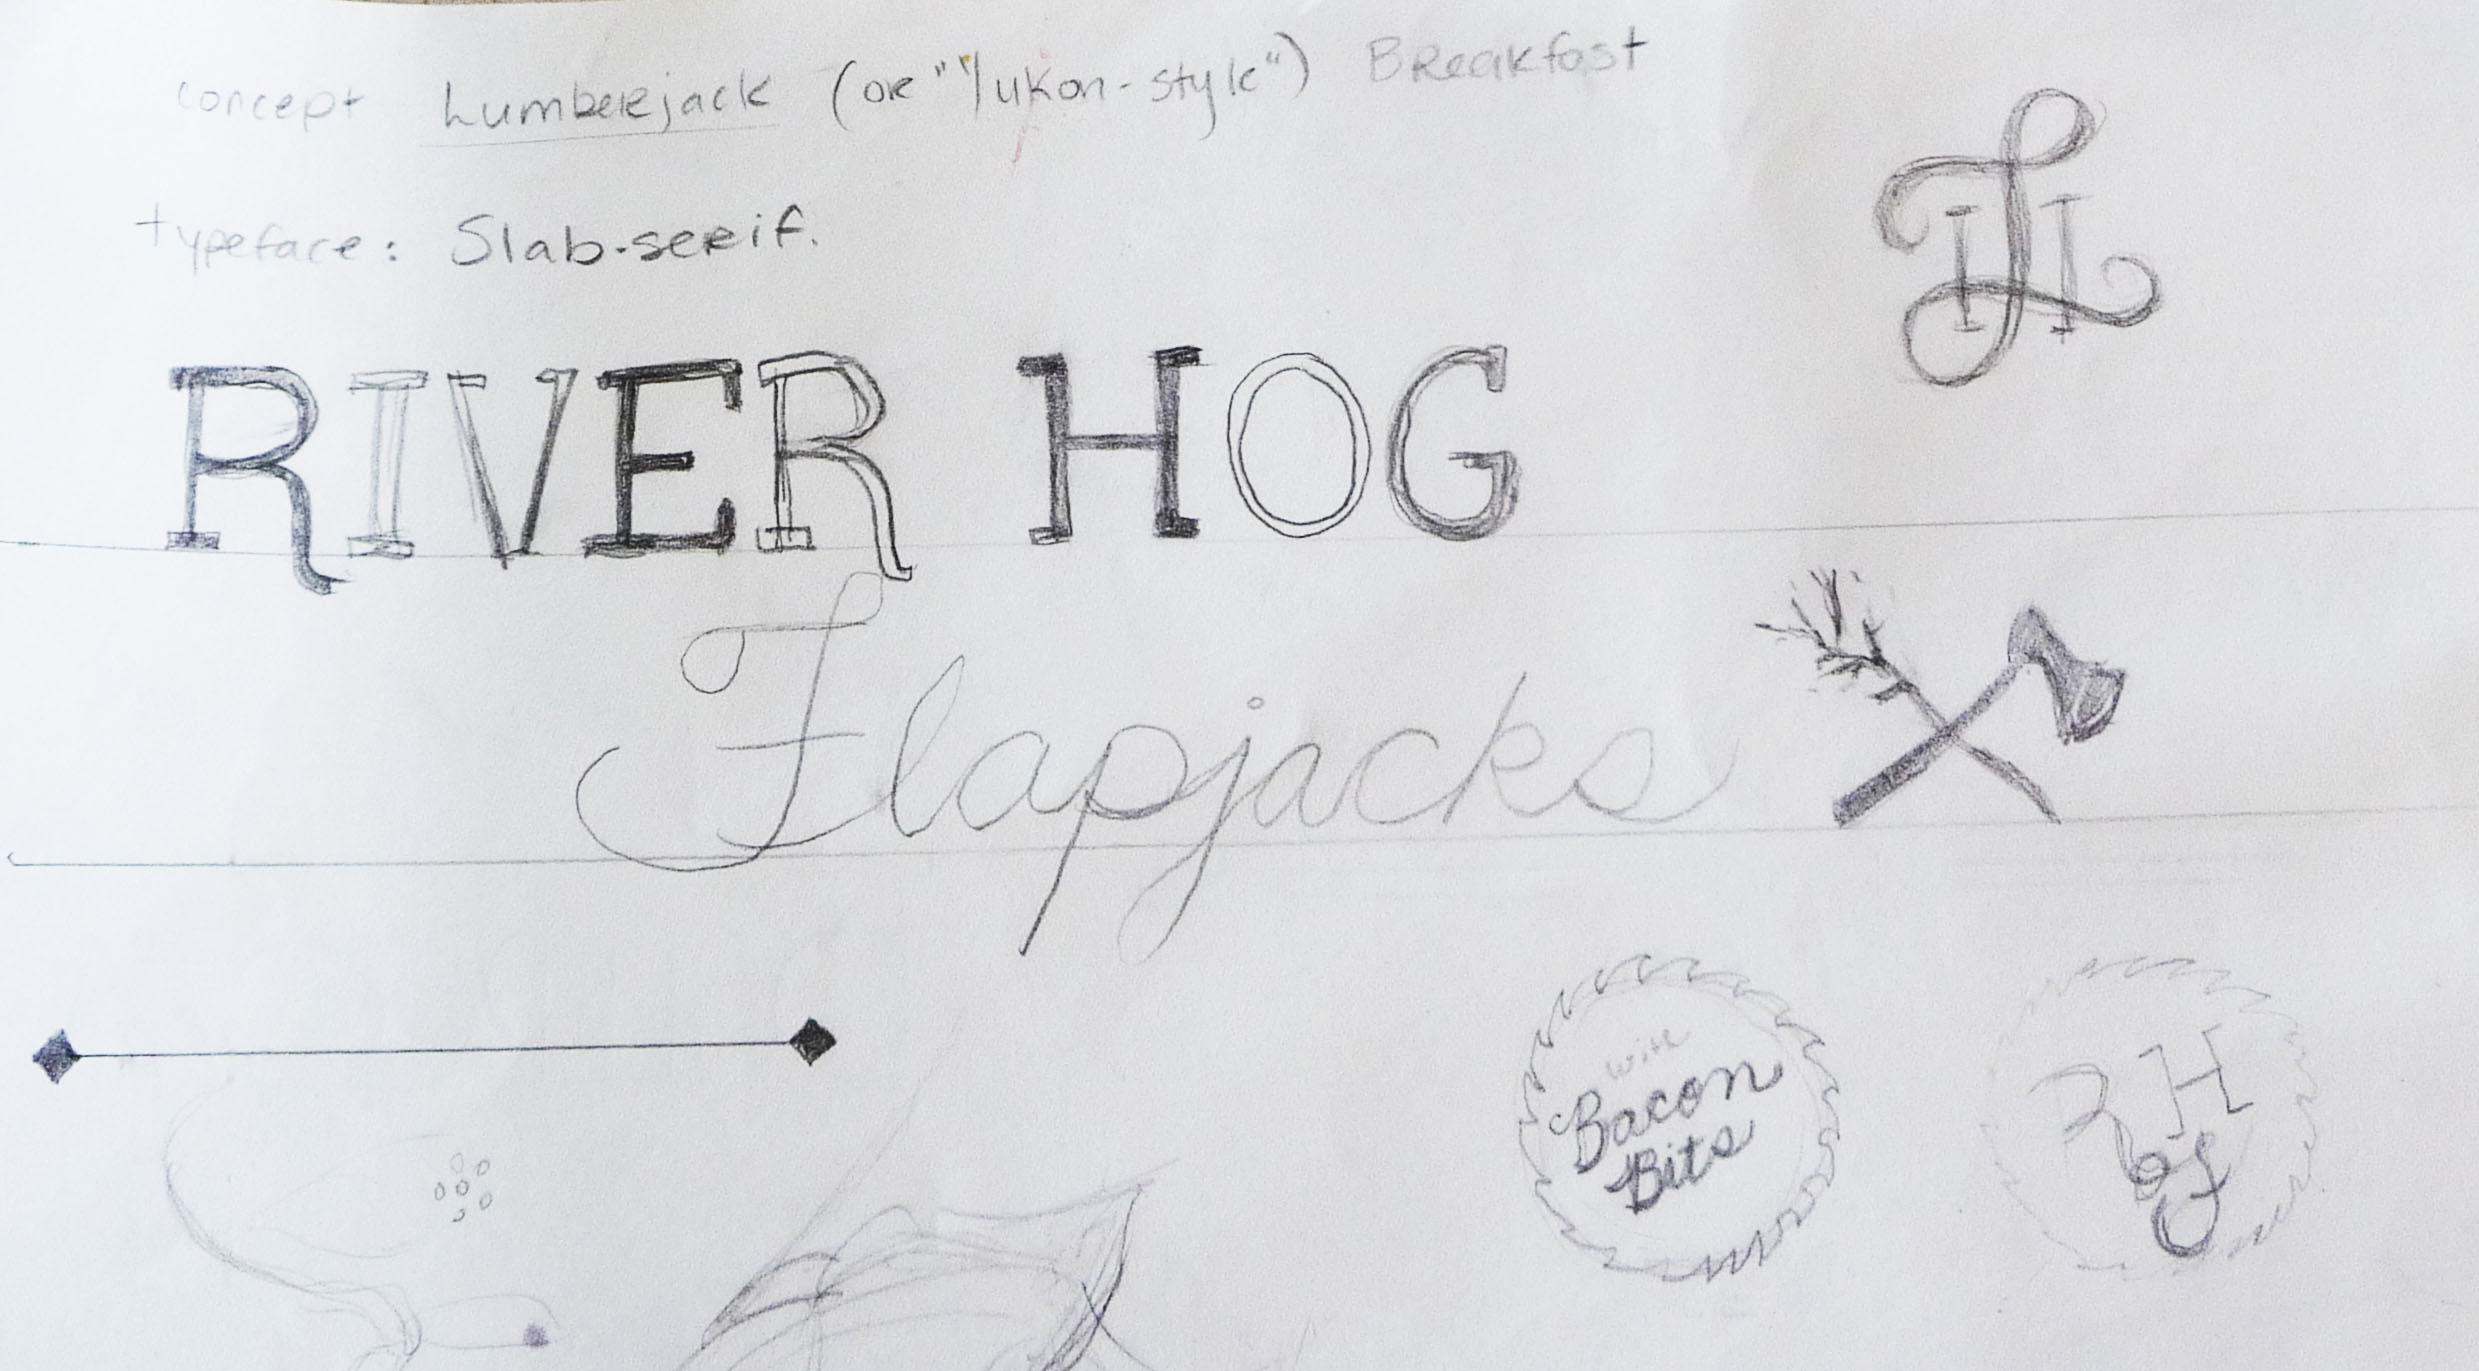 concept Lumberjack (or "Yukon-style") Breakfast
typeface: Slab-serif.
RIVER HOG
Flapjacks
with
Bacon
Bits
R H